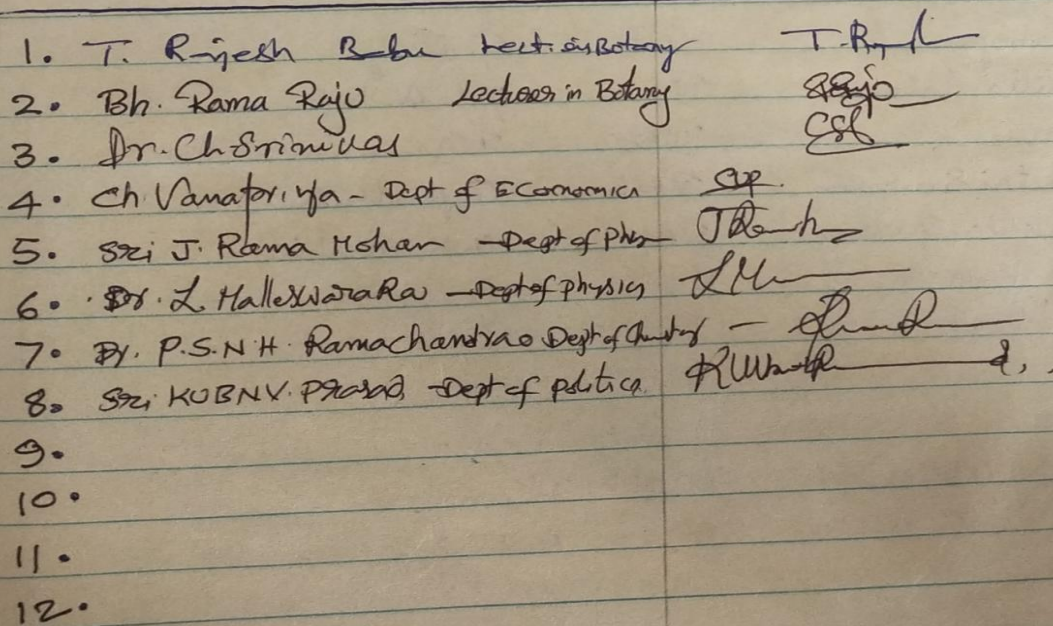 1. T. Rajesh Babu Lect. in Botany T. Raj
2. Bh. Rama Raju Lecturer in Botany BRaju
3. Dr. Ch Srinivas CSS
4. Ch. Vanapriya - Dept of Economics
5. Sri J. Rama Mohan - Dept of Phy
6. Dr. L. MalleswaraRao - Dept of physics
7. Dr. P.S.N.H. Ramachandrao Dept of Chemistry -
8. Sri. KUBNV. Prasad, Dept of politics.
9.
10.
11.
12.